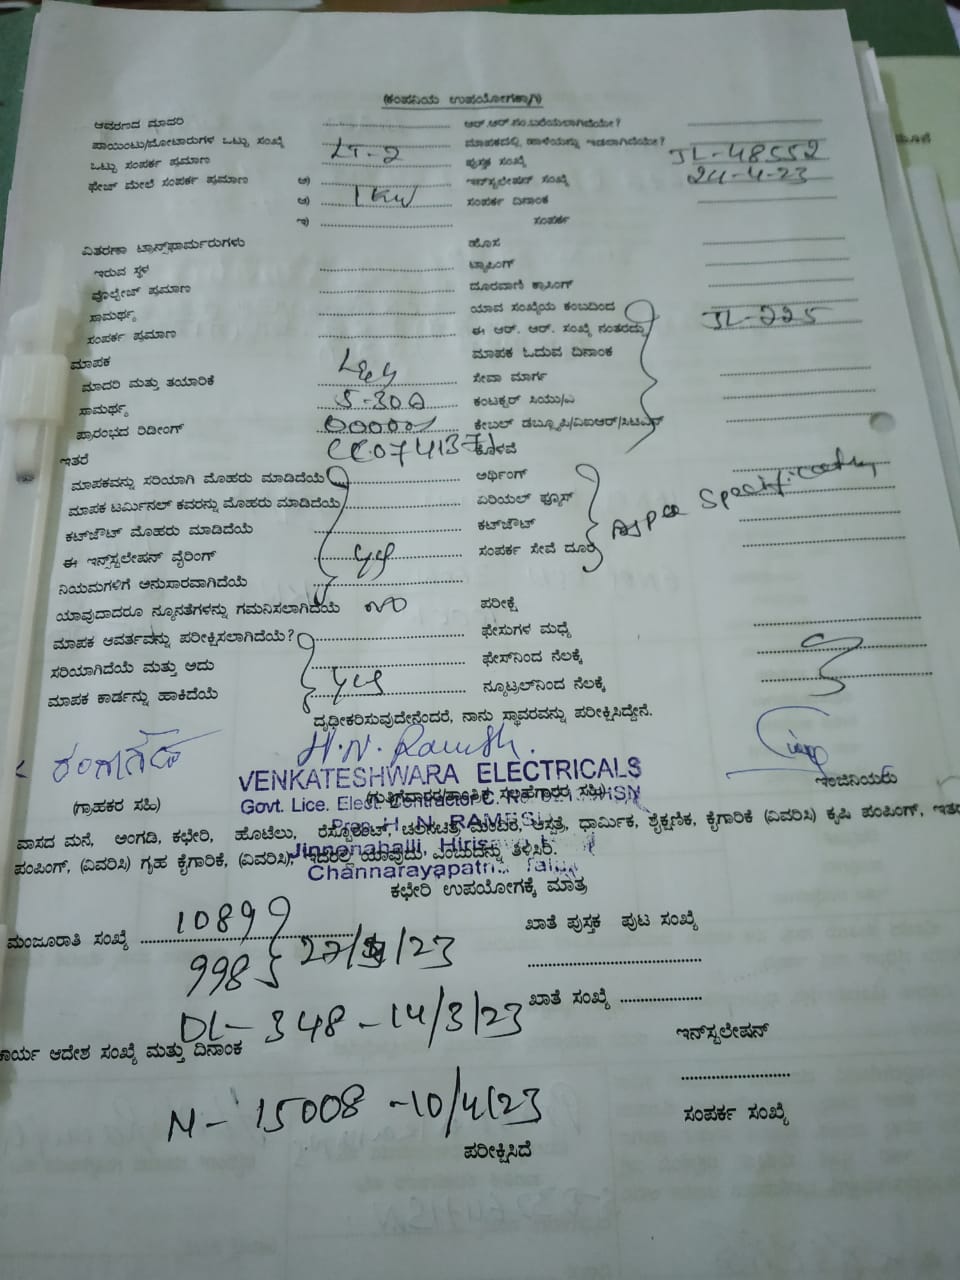 (ಕಂಪನಿಯ ಉಪಯೋಗಕ್ಕಾಗಿ)
ಆವರಣದ ಮಾದರಿ ಆರ್.ಆರ್.ಸಂ.ಬರೆಯಲಾಗಿದೆಯೇ?
ಪಾಯಿಂಟು/ಮೋಟಾರುಗಳ ಒಟ್ಟು ಸಂಖ್ಯೆ ಮಾಪಕದಲ್ಲಿ ಹಾಳೆಯನ್ನು ಇಡಲಾಗಿದೆಯೇ?
ಒಟ್ಟು ಸಂಪರ್ಕ ಪ್ರಮಾಣ LT-2 ಪುಸ್ತಕ ಸಂಖ್ಯೆ JL-48552
ಫೇಜ್ ಮೇಲೆ ಸಂಪರ್ಕ ಪ್ರಮಾಣ ಅ) ಇನ್‌ಸ್ಟಲೇಷನ್ ಸಂಖ್ಯೆ 24-4-23
ಆ) 1KW ಸಂಪರ್ಕ ದಿನಾಂಕ
ಇ) ಸಂಪರ್ಕ
ವಿತರಣಾ ಟ್ರಾನ್ಸ್‌ಫಾರ್ಮರುಗಳು ಹೊಸ
ಇರುವ ಸ್ಥಳ ಟ್ಯಾಪಿಂಗ್
ವೊಲ್ಟೇಜ್ ಪ್ರಮಾಣ ದೂರವಾಣಿ ಕ್ರಾಸಿಂಗ್
ಸಾಮರ್ಥ್ಯ ಯಾವ ಸಂಖ್ಯೆಯ ಕಂಬದಿಂದ
ಸಂಪರ್ಕ ಪ್ರಮಾಣ ಈ ಆರ್. ಆರ್. ಸಂಖ್ಯೆ ನಂತರದ್ದು JL-225
ಮಾಪಕ ಮಾಪಕ ಓದುವ ದಿನಾಂಕ
ಮಾದರಿ ಮತ್ತು ತಯಾರಿಕೆ L&G ಸೇವಾ ಮಾರ್ಗ
ಸಾಮರ್ಥ್ಯ 5-30A ಕಂಟಕ್ಟರ್ ಸಿಯು/ಎ
ಪ್ರಾರಂಭದ ರಿಡೀಂಗ್ ಕೇಬಲ್ ಡಬ್ಲ್ಯೂಪಿ/ವಿಐಆರ್/ಸಿಟಿಎಸ್
ಇತರೆ ಕೊಳವೆ
ಮಾಪಕವನ್ನು ಸರಿಯಾಗಿ ಮೊಹರು ಮಾಡಿದೆಯೆ ಅರ್ಥಿಂಗ್
ಮಾಪಕ ಟರ್ಮಿನಲ್ ಕವರನ್ನು ಮೊಹರು ಮಾಡಿದೆಯೆ ಏರಿಯಲ್ ಫ್ಯೂಸ್
ಕಟ್‌ಜೌಟ್ ಮೊಹರು ಮಾಡಿದೆಯೆ ಕಟ್‌ಜೌಟ್
ಈ ಇನ್‌ಸ್ಟಲೇಷನ್ ವೈರಿಂಗ್ yes ಸಂಪರ್ಕ ಸೇವೆ ದೂರ
ನಿಯಮಗಳಿಗೆ ಅನುಸಾರವಾಗಿದೆಯೆ
ಯಾವುದಾದರೂ ನ್ಯೂನತೆಗಳನ್ನು ಗಮನಿಸಲಾಗಿದೆಯೆ no ಪರೀಕ್ಷೆ
ಮಾಪಕ ಆವರ್ತವನ್ನು ಪರೀಕ್ಷಿಸಲಾಗಿದೆಯೆ? ಫೇಸುಗಳ ಮಧ್ಯೆ
ಸರಿಯಾಗಿದೆಯೆ ಮತ್ತು ಅದು ಫೇಸ್‌ನಿಂದ ನೆಲಕ್ಕೆ
ಮಾಪಕ ಕಾರ್ಡನ್ನು ಹಾಕಿದೆಯೆ yes ನ್ಯೂಟ್ರಲ್‌ನಿಂದ ನೆಲಕ್ಕೆ
ದೃಢೀಕರಿಸುವುದೇನೆಂದರೆ, ನಾನು ಸ್ಥಾವರವನ್ನು ಪರೀಕ್ಷಿಸಿದ್ದೇನೆ.
H.N. Ramesh.
VENKATESHWARA ELECTRICALS ಇಂಜಿನಿಯರು
(ಗ್ರಾಹಕರ ಸಹಿ) Govt. Lice. Elect. Contractor
ವಾಸದ ಮನೆ, ಅಂಗಡಿ, ಕಛೇರಿ, ಹೋಟೆಲು, ರೆಸ್ಟೋರೆಂಟ್, ಚಲನಚಿತ್ರ ಮಂದಿರ, ಆಸ್ಪತ್ರೆ, ಧಾರ್ಮಿಕ, ಶೈಕ್ಷಣಿಕ, ಕೈಗಾರಿಕೆ (ವಿವರಿಸಿ) ಕೃಷಿ ಪಂಪಿಂಗ್,
ಪಂಪಿಂಗ್, (ವಿವರಿಸಿ) ಗೃಹ ಕೈಗಾರಿಕೆ, (ವಿವರಿಸಿ), ಇದರಲ್ಲಿ ಯಾವುದು, ಎಂಬುದನ್ನು ತಿಳಿಸಿರಿ.
Jinnenahalli,
Channarayapatna Taluk
ಕಛೇರಿ ಉಪಯೋಗಕ್ಕೆ ಮಾತ್ರ
ಮಂಜೂರಾತಿ ಸಂಖ್ಯೆ 10899 ಖಾತೆ ಪುಸ್ತಕ ಪುಟ ಸಂಖ್ಯೆ
998
ಖಾತೆ ಸಂಖ್ಯೆ
DL-348-14/3/23
ಕಾರ್ಯ ಆದೇಶ ಸಂಖ್ಯೆ ಮತ್ತು ದಿನಾಂಕ ಇನ್‌ಸ್ಟಲೇಷನ್
M-15008-10/4/23 ಸಂಪರ್ಕ ಸಂಖ್ಯೆ
ಪರೀಕ್ಷಿಸಿದೆ